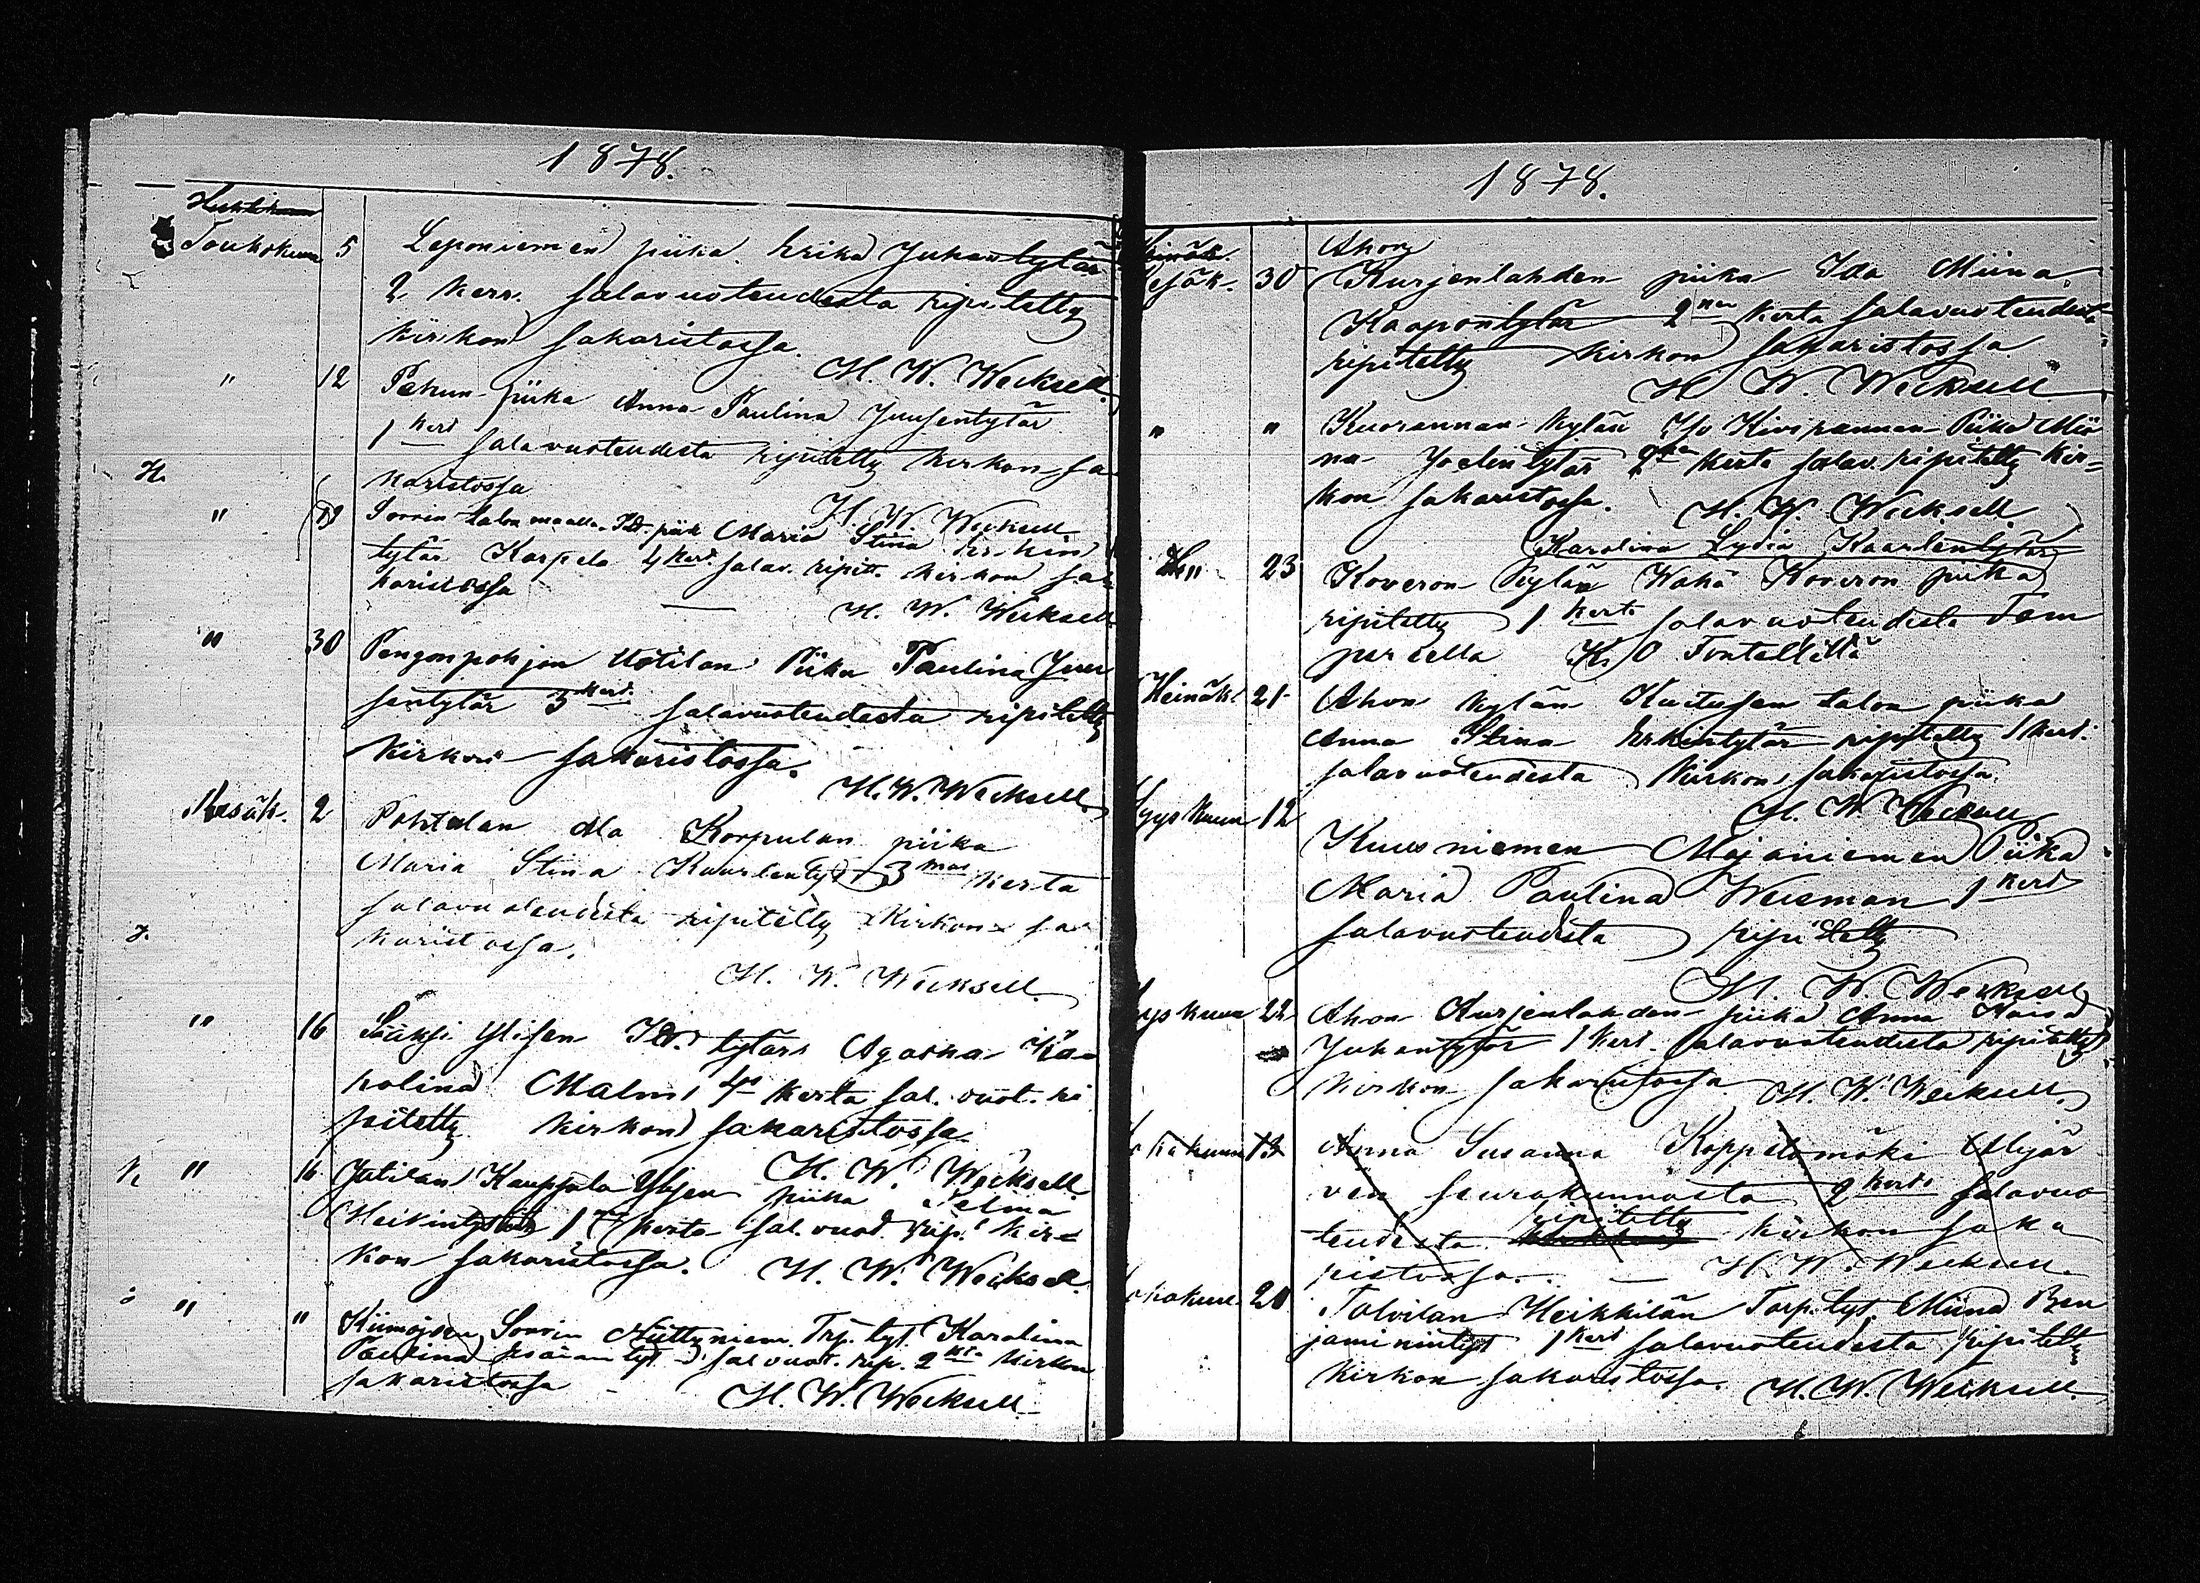 1878.
Huhtikuu
Toukokuu 5 Leponiemen piika Erika Juhantytär
2 kerr. salavuoteudesta ripitetty
kirkon sakaristossa.
H. W. Wecksell.
" 12 Pekun piika Anna Paulina Juusentytär
1 kert salavuoteudesta ripitetty kirkon sa
karistossa
H. W. Wecksell
" 19 Sorrin talon maalla It. piik Maria Stina Erkin
tytär Karpela 4 kert. salav. ripitt. kirkon sa=
karistossa
H. W. Wecksell.
" 30 Pengonpohjan Uotilan Piika Paulina Juu
sentytär 3 kert. salavuoteudesta ripitetty
kirkon sakaristossa.
H. W. Wecksell
Kesäk. 2 Pohtolan Ala Korpulan piika
Maria Stina Kaarlentyt 3 mas kerta
salavuoteudesta ripitetty Kirkon sa
karistossa.
H. W. Wecksell.
" 16 Sääksi Ylisen tytär Agatha Ka
rolina Malm 4s kerta sal. vuot. ri
pitetty kirkon sakaristossa
H. W. Wecksell.
" 16 Jutilan Kauppila Yljsen piika Selma
Heikintytär 1 kerta sal. vuod. rip. kir=
kon sakaristossa. H. W. Wecksell.
" " Kiimajoen Sorrin Niittyniem. Trp. tyt. Karolina
Paulina Esaiantyt. sal vuot. rip. 2 kirkon
sakaristossa
H. W. Wecksell.
1878.
Heinäk.
Kesäk. 30 Ahon
Kurjenlahden piika Ida Miina
Kaapontytär 2 nen kerta salavuoteudesta
ripitetty kirkon sakaristossa.
H W. Wecksell
" " Kuorannan kylän Iso Kivipannan Piika Mii
na Joelintytär 2 kerta salav. ripitetty kir=
kon sakaristossa. H. W. Wecksell.
Karolina Lydia Kaarlentytär
23 Koveron Kylän Wähä Koveron piika
ripitetty 1 kerta salavuoteudesta Tam
pereella K. O Fontellilta
Heinäk. 21 Ahon kylän Kustusen talon piika
Anna Stina Erkintytär ripitetty 1 kert.
salavuoteudesta kirkon sakaristossa.
H. W. Wecksell
Syyskuun 12
Kuusniemen Majaniemen Piika
Maria Paulina Weisman 1 kert
salavuoteudesta ripitetty
H. W. Wecksell
Syyskuun 22 Ahon Kurjenlahden piika Anna
Juhantytär 1 kert. salavuoteudesta ripitetty
kirkon sakaristossa. H. W. Wecksell.
Lokakuun 13 Anna Susanna Koppelomäki Ylijär
ven seurakunnasta 2 kert. salavuo
teudesta ripitetty kirkon saka
ristossa. H. W. Wecksell.
Lokakuu. 20 Tolvilan Heikkilän Torp. tyt. Miina Ben
jamimintyt 1 kert salavuoteudesta ripitetty
kirkon sakaristossa. H. W. Wecksell.